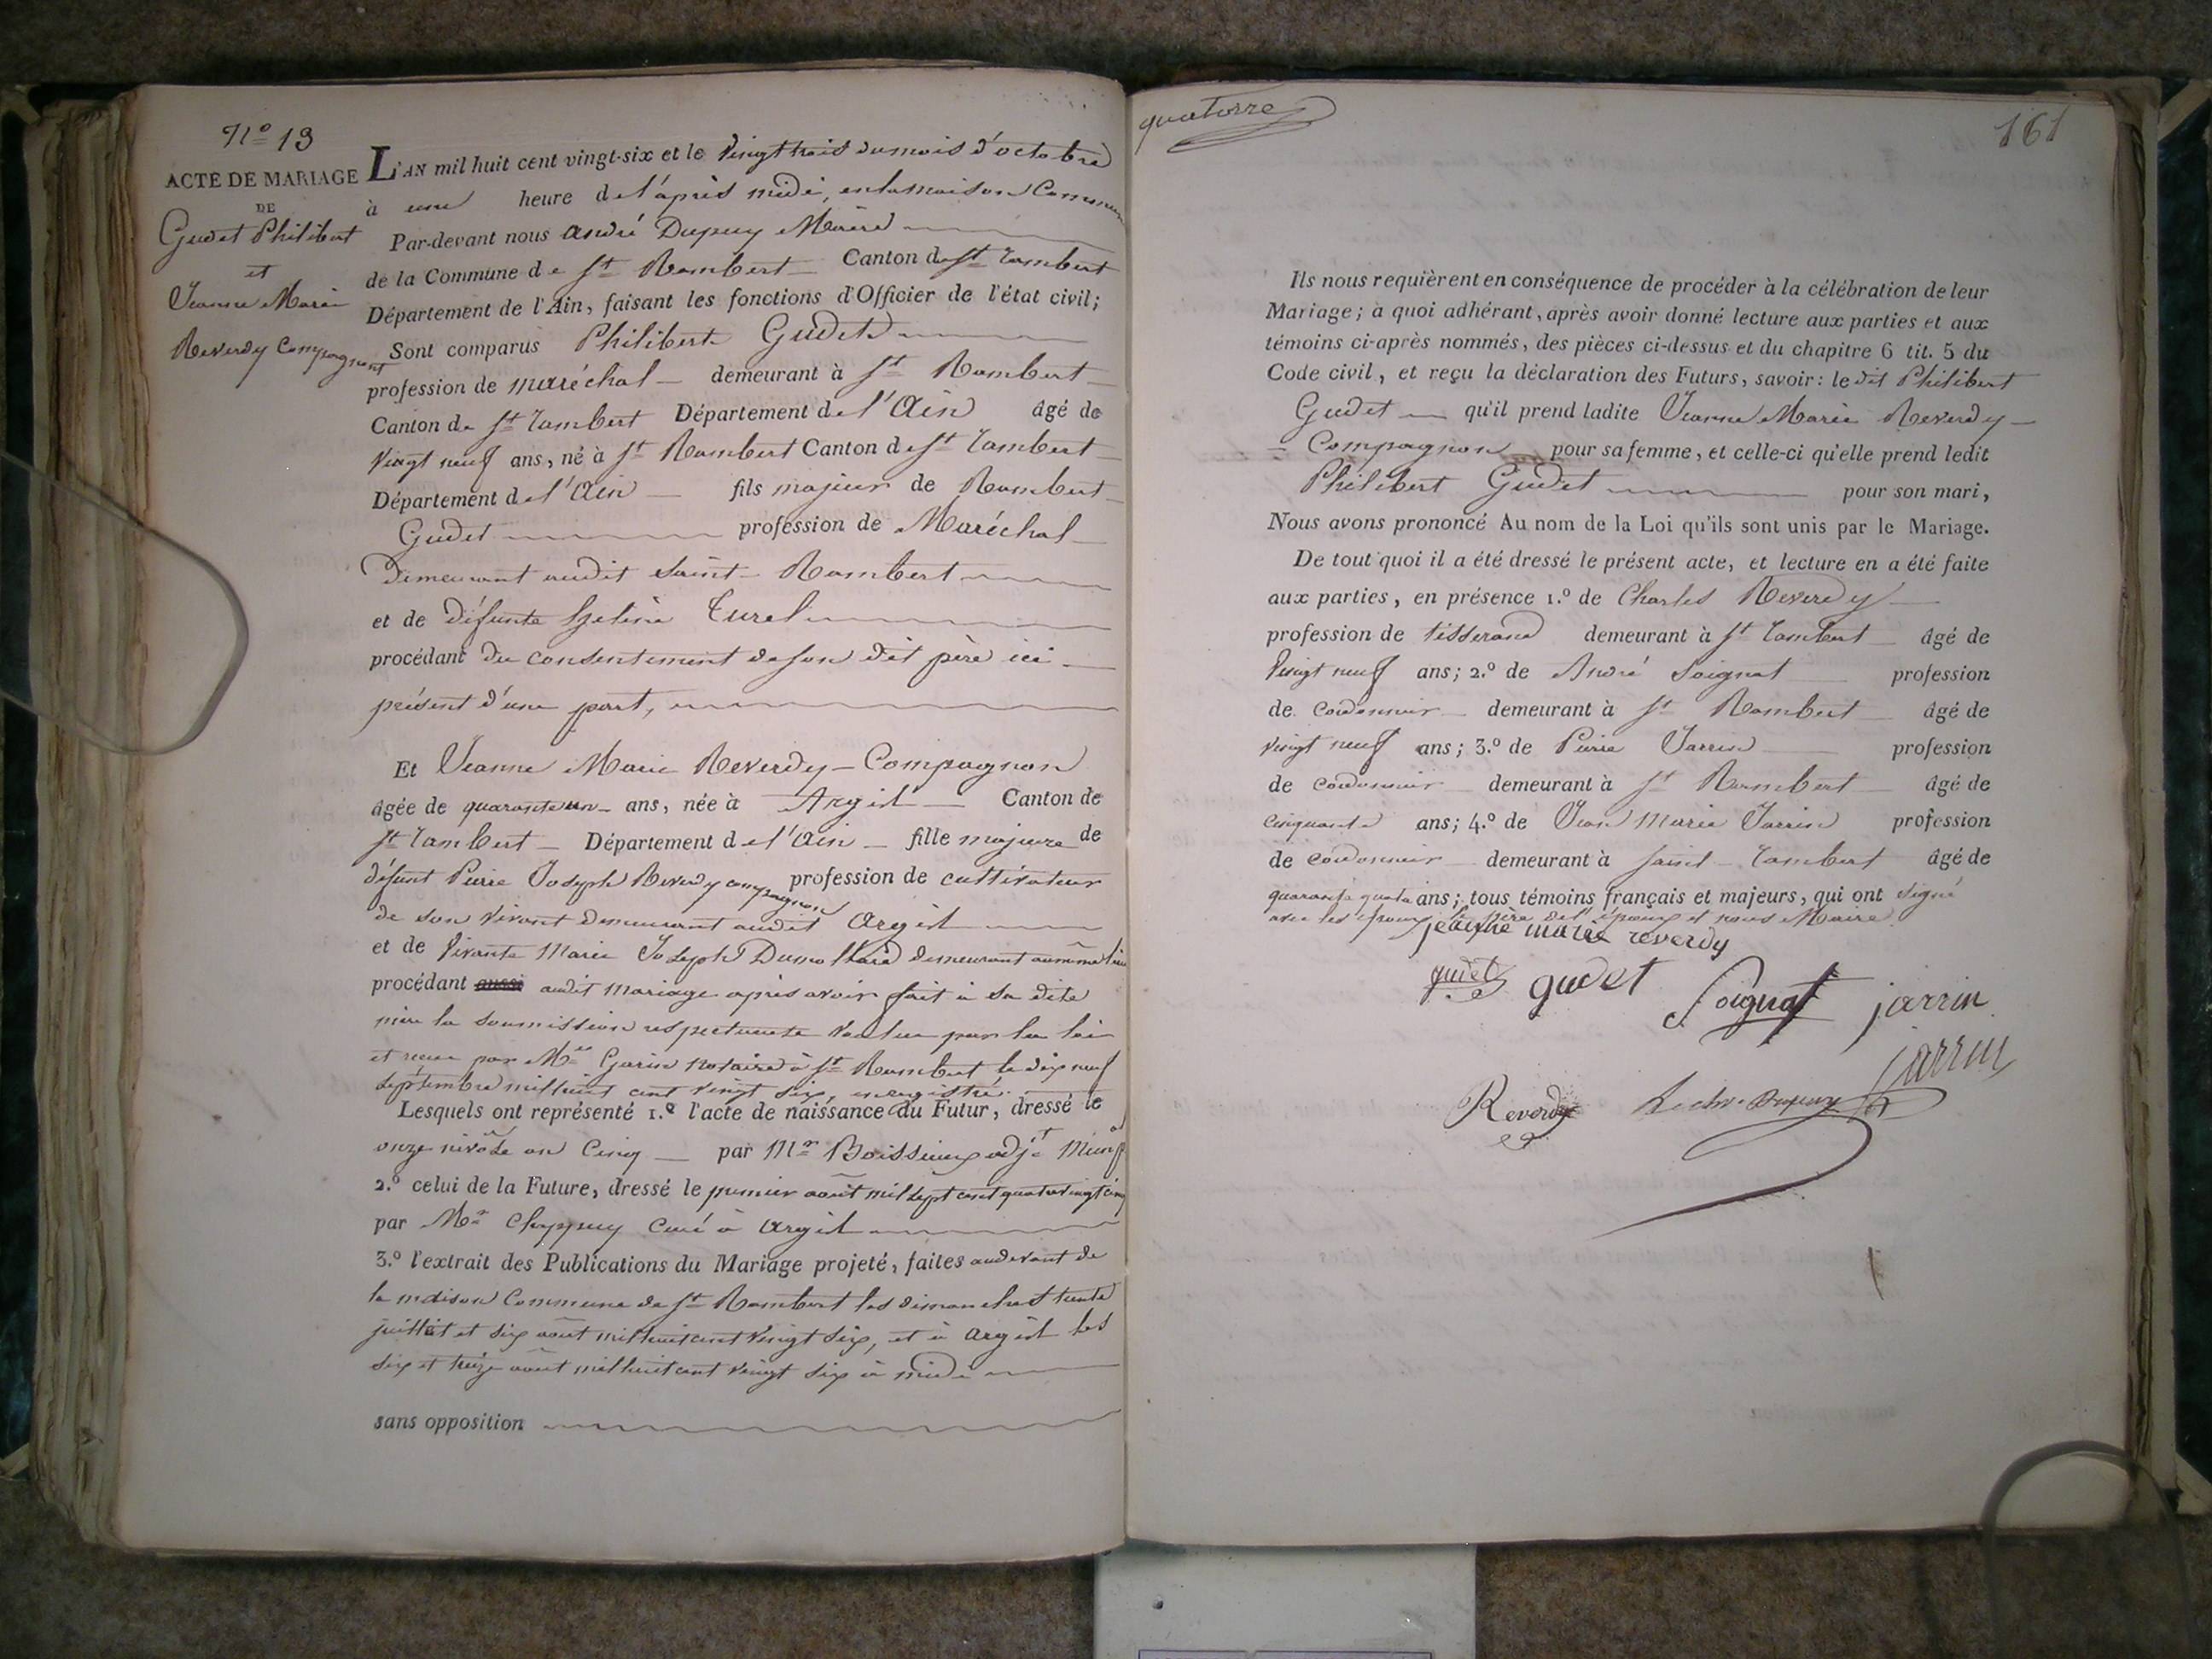 N.º 13
ACTE DE MARIAGE
DE
Gudet Philibert
et
Jeanne Marie
Reverdy Compagnon
L'AN mil huit cent vingt-six et le vingt trois du mois d'octobre
à une heure de l'après midi, en la maison Commune
Par-devant nous André Dupuy Maire
de la Commune de St Rambert Canton de St Rambert
Département de l'Ain, faisant les fonctions d'Officier de l'état civil;
Sont comparus Philibert Gudet
profession de maréchal demeurant à St Rambert
Canton de St Rambert Département de l'Ain âgé de
vingt neuf ans, né à St Rambert Canton de St Rambert
Département de l'Ain fils majeur de Rambert
Gudet profession de Maréchal
Demeurant audit Saint-Rambert
et de défunte hélène Curel
procédant du consentement de son dit père ici
présent d'une part,
Et Jeanne Marie Reverdy-Compagnon
âgée de quarante un ans, née à Argis Canton de
St Rambert Département de l'Ain fille majeure de
défunt Pierre Joseph Reverdy compagnon profession de cultivateur
de son vivant demeurant audit Argis
et de vivante Marie Joseph Dumollard demeurant au même lieu
procédant audit mariage après avoir fait à sa dite
mère la soumission respectueuse voulue par la loi
et reçue par Me Garin notaire à St Rambert le dix neuf
septembre mil huit cent vingt six, enregistré.
Lesquels ont représenté 1.º l'acte de naissance du Futur, dressé le
onze nivôse an Cinq par Mr Boissieux adjt Munal
2.º celui de la Future, dressé le premier août mil sept cent quatre vingt cinq
par Mr Chappuy Curé à Argis
3.º l'extrait des Publications du Mariage projeté, faites au devant de
la maison Commune de St Rambert les dimanches trente
juillet et six août mil huit cent vingt six, et à Argis les
six et treize août mil huit cent vingt six à midi
sans opposition
quatorze
161
Ils nous requièrent en conséquence de procéder à la célébration de leur
Mariage; à quoi adhérant, après avoir donné lecture aux parties et aux
témoins ci-après nommés, des pièces ci-dessus et du chapitre 6 tit. 5 du
Code civil, et reçu la déclaration des Futurs, savoir: le dit Philibert
Gudet qu'il prend ladite Jeanne Marie Reverdy
Compagnon pour sa femme, et celle-ci qu'elle prend ledit
Philibert Gudet pour son mari,
Nous avons prononcé Au nom de la Loi qu'ils sont unis par le Mariage.
De tout quoi il a été dressé le présent acte, et lecture en a été faite
aux parties, en présence 1.º de Charles Reverdy
profession de tisserand demeurant à St Rambert âgé de
vingt neuf ans; 2.º de André Soignat profession
de cordonnier demeurant à St Rambert âgé de
vingt neuf ans; 3.º de Pierre Jarrin profession
de cordonnier demeurant à St Rambert âgé de
cinquante ans; 4.º de Jean Marie Jarrin profession
de cordonnier demeurant à Saint-Rambert âgé de
quarante quatre ans; tous témoins français et majeurs, qui ont signé
avec les époux, le père de l'époux et nous Maire
jeanne marie reverdy
gudet gudet Soignat jarrin
jarrin
Reverdy Dupuy